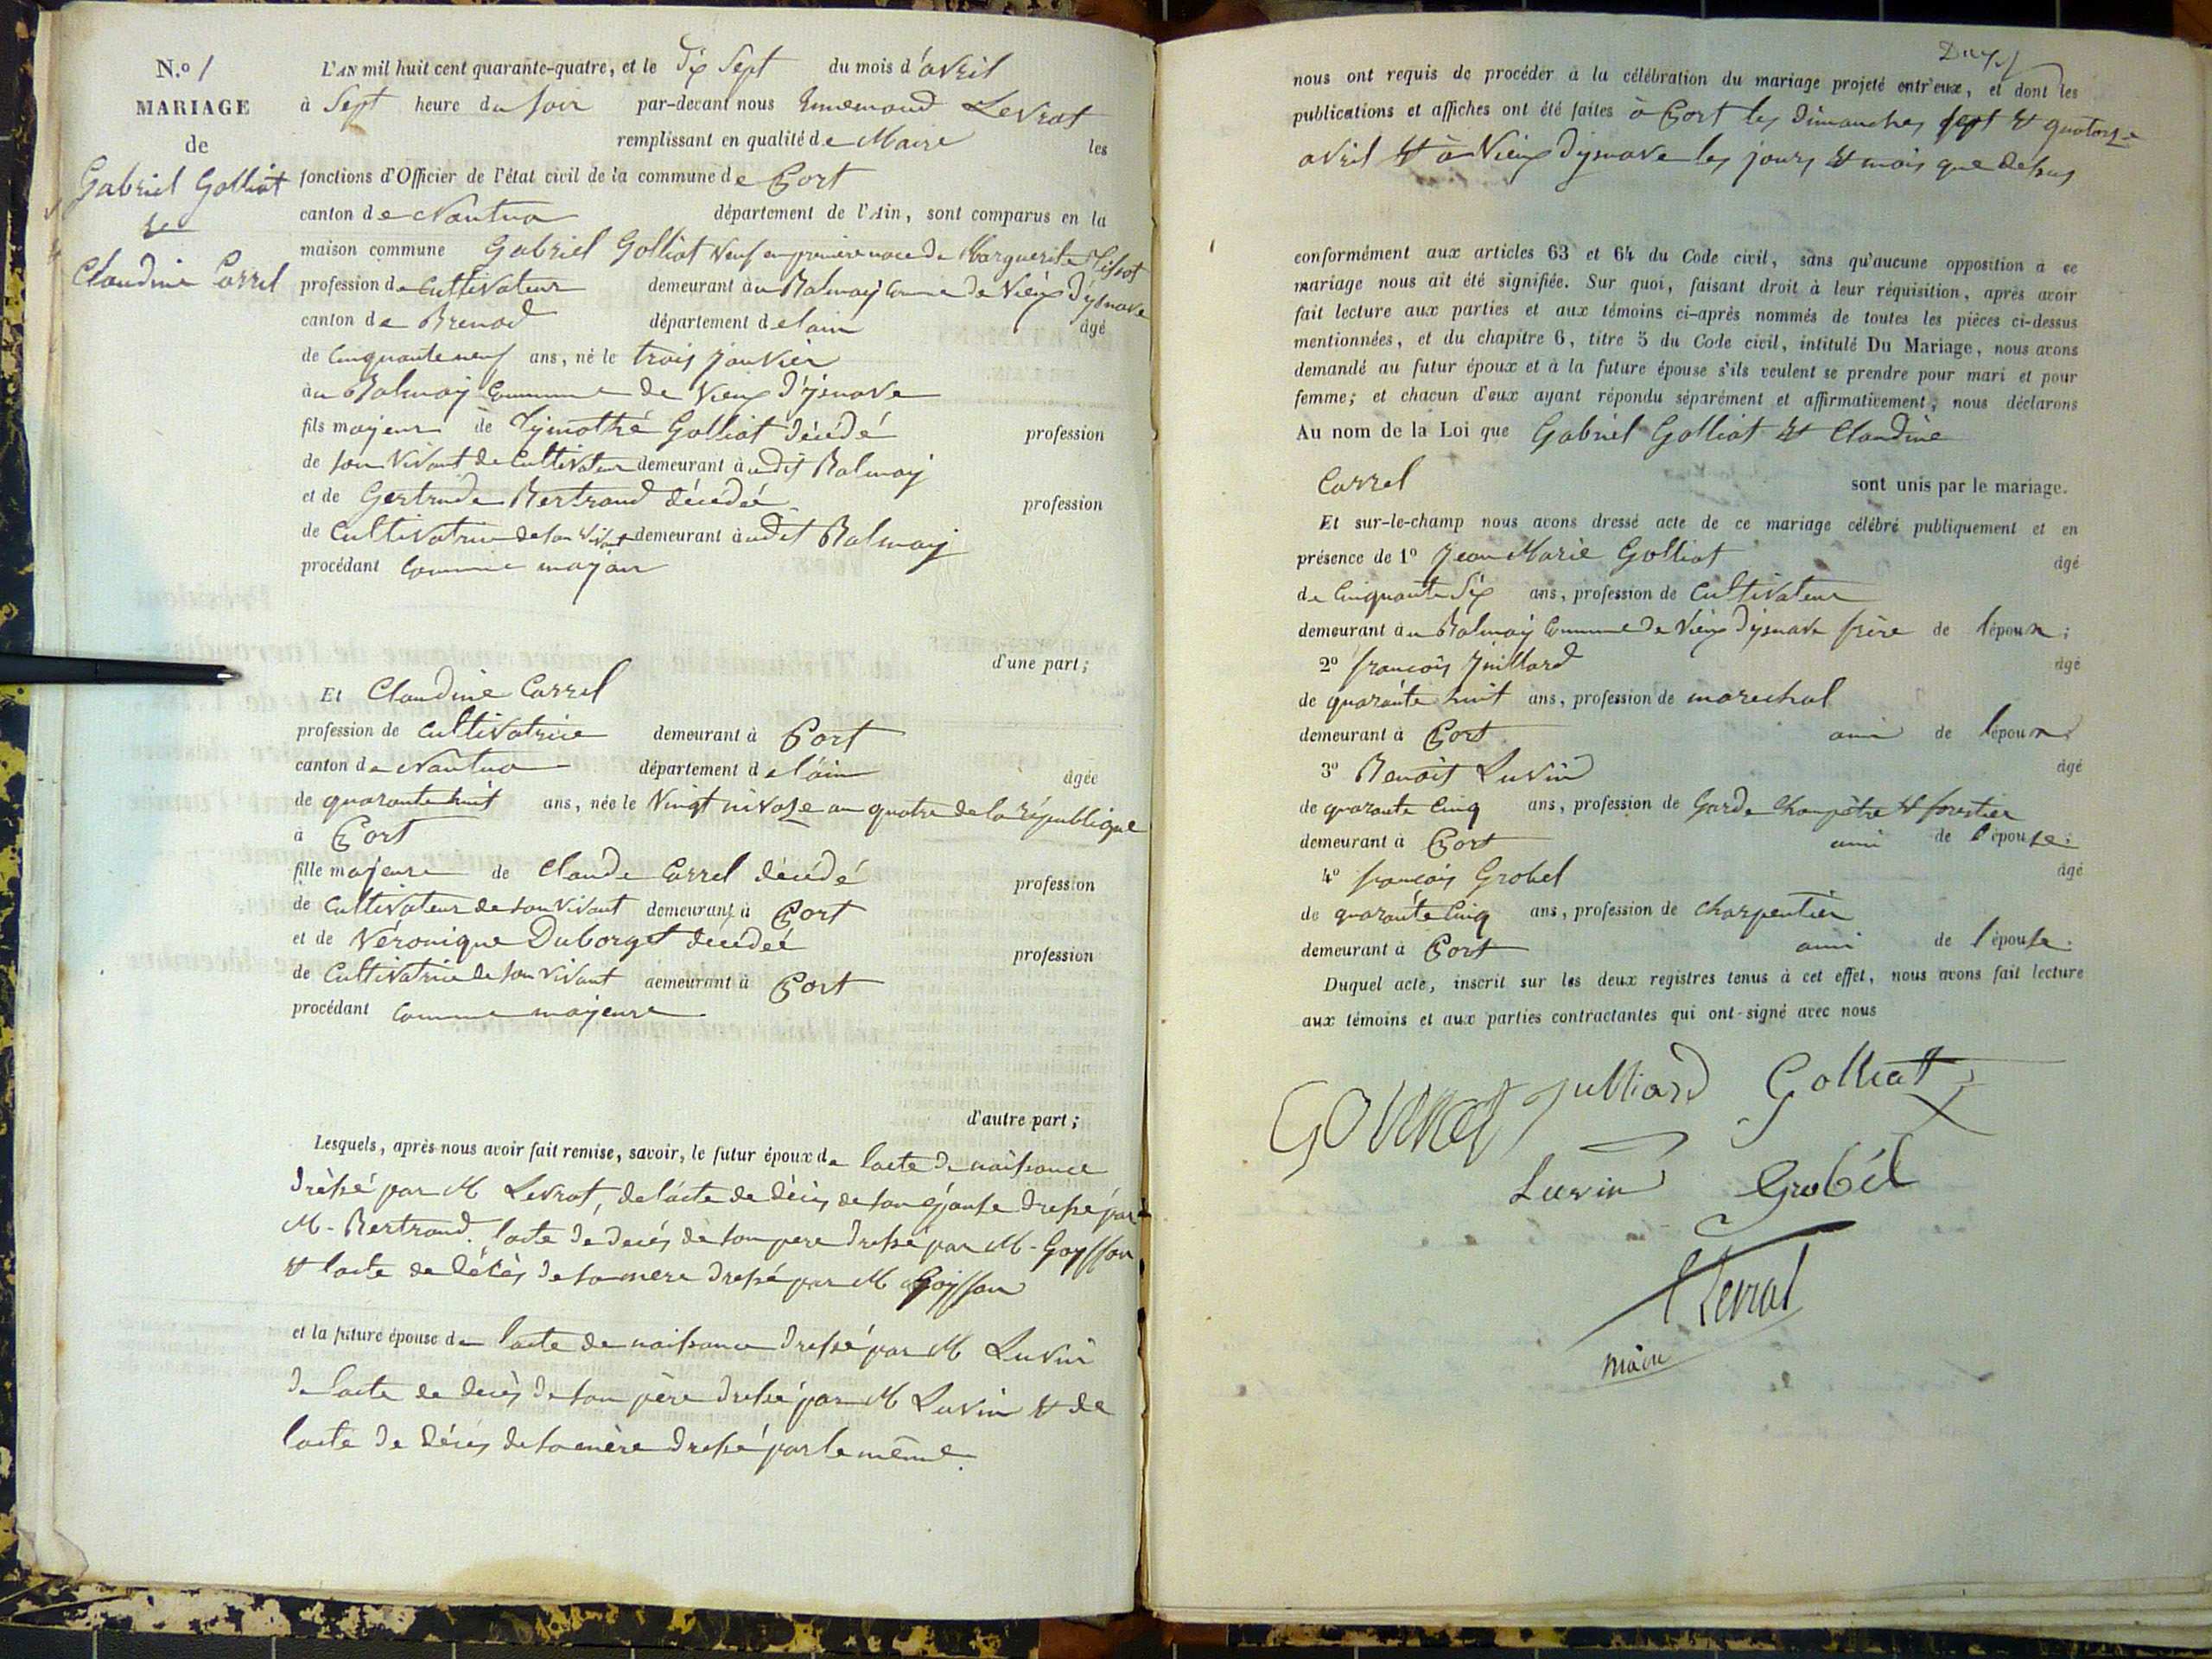 N.º 1
MARIAGE
de
Gabriel Golliat
et
Claudine Carrel
L'AN mil huit cent quarante-quatre, et le Dix Sept du mois d'avril
à Sept heure du soir par-devant nous Ennemond Levrat
remplissant en qualité de Maire les
fonctions d'Officier de l'état civil de la commune de Port
canton de Nantua département de l'Ain, sont comparus en la
maison commune Gabriel Golliat Veuf en première noce de Marguerite Tissot
profession de Cultivateur demeurant à u Balmay Comne de Vieux d'ysnave
canton de Brenod département de lain âgé
de Cinquante neuf ans, né le trois janvier
à u Balmay Commune de Vieux d'ysnave
fils majeur de Tymothé Golliat décédé profession
de son Vivant de Cultivateur demeurant à udit Balmay
et de Gertrude Bertrand décédée profession
de Cultivatrice de son vivant demeurant à udit Balmay
procédant Comme majeur
d'une part;
Et Claudine Carrel
profession de Cultivatrice demeurant à Port
canton de Nantua département de lain âgée
de quarante huit ans, née le Vingt nivose an quatre de la république
à Port
fille majeure de Claude Carrel décédé profession
de Cultivateur de son vivant demeurant à Port
et de Véronique Duborget décédée profession
de Cultivatrice de son vivant demeurant à Port
procédant Comme majeure
d'autre part;
Lesquels, après nous avoir fait remise, savoir, le futur époux de lacte de naissance
dressé par M Levrat, de lacte de décès de son épouse dressé par
M. Bertrand. lacte de decés de son pere dressé par M. Goysson
et lacte de décès de sa mere dressé par M Goysson
et la future épouse de lacte de naissance dressé par M Luvin
de lacte de decès de son père dressé par M Luvin et de
lacte de décès de sa mère dressé par le même.
nous ont requis de procéder à la célébration du mariage projeté entr'eux, et dont les
publications et affiches ont été faites à Port les Dimanches sept et quatorze
avril et à Vieux dysnave les jours et mois que dessus
conformément aux articles 63 et 64 du Code civil, sans qu'aucune opposition à ce
mariage nous ait été signifiée. Sur quoi, faisant droit à leur réquisition, après avoir
fait lecture aux parties et aux témoins ci-après nommés de toutes les pièces ci-dessus
mentionnées, et du chapitre 6, titre 5 du Code civil, intitulé Du Mariage, nous avons
demandé au futur époux et à la future épouse s'ils veulent se prendre pour mari et pour
femme; et chacun d'eux ayant répondu séparément et affirmativement, nous déclarons
Au nom de la Loi que Gabriel Golliat et Claudine
Carrel sont unis par le mariage.
Et sur-le-champ nous avons dressé acte de ce mariage célébré publiquement et en
présence de 1º Jean Marie Golliat âgé
de Cinquante Six ans, profession de Cultivateur
demeurant à u Balmay Commune de Vieux dysnave frère de lépoux;
2º françois Juillard âgé
de quarante huit ans, profession de marechal
demeurant à Port ami de lépoux
3º Benoit Luvin âgé
de quarante Cinq ans, profession de Garde Champêtre et forestier
demeurant à Port ami de lépouse;
4º françois Grobel âgé
de quarante Cinq ans, profession de Charpentier
demeurant à Port ami de lépouse.
Duquel acte, inscrit sur les deux registres tenus à cet effet, nous avons fait lecture
aux témoins et aux parties contractantes qui ont signé avec nous
Julliard Golliat
Luvin Grobél
Levrat
maire